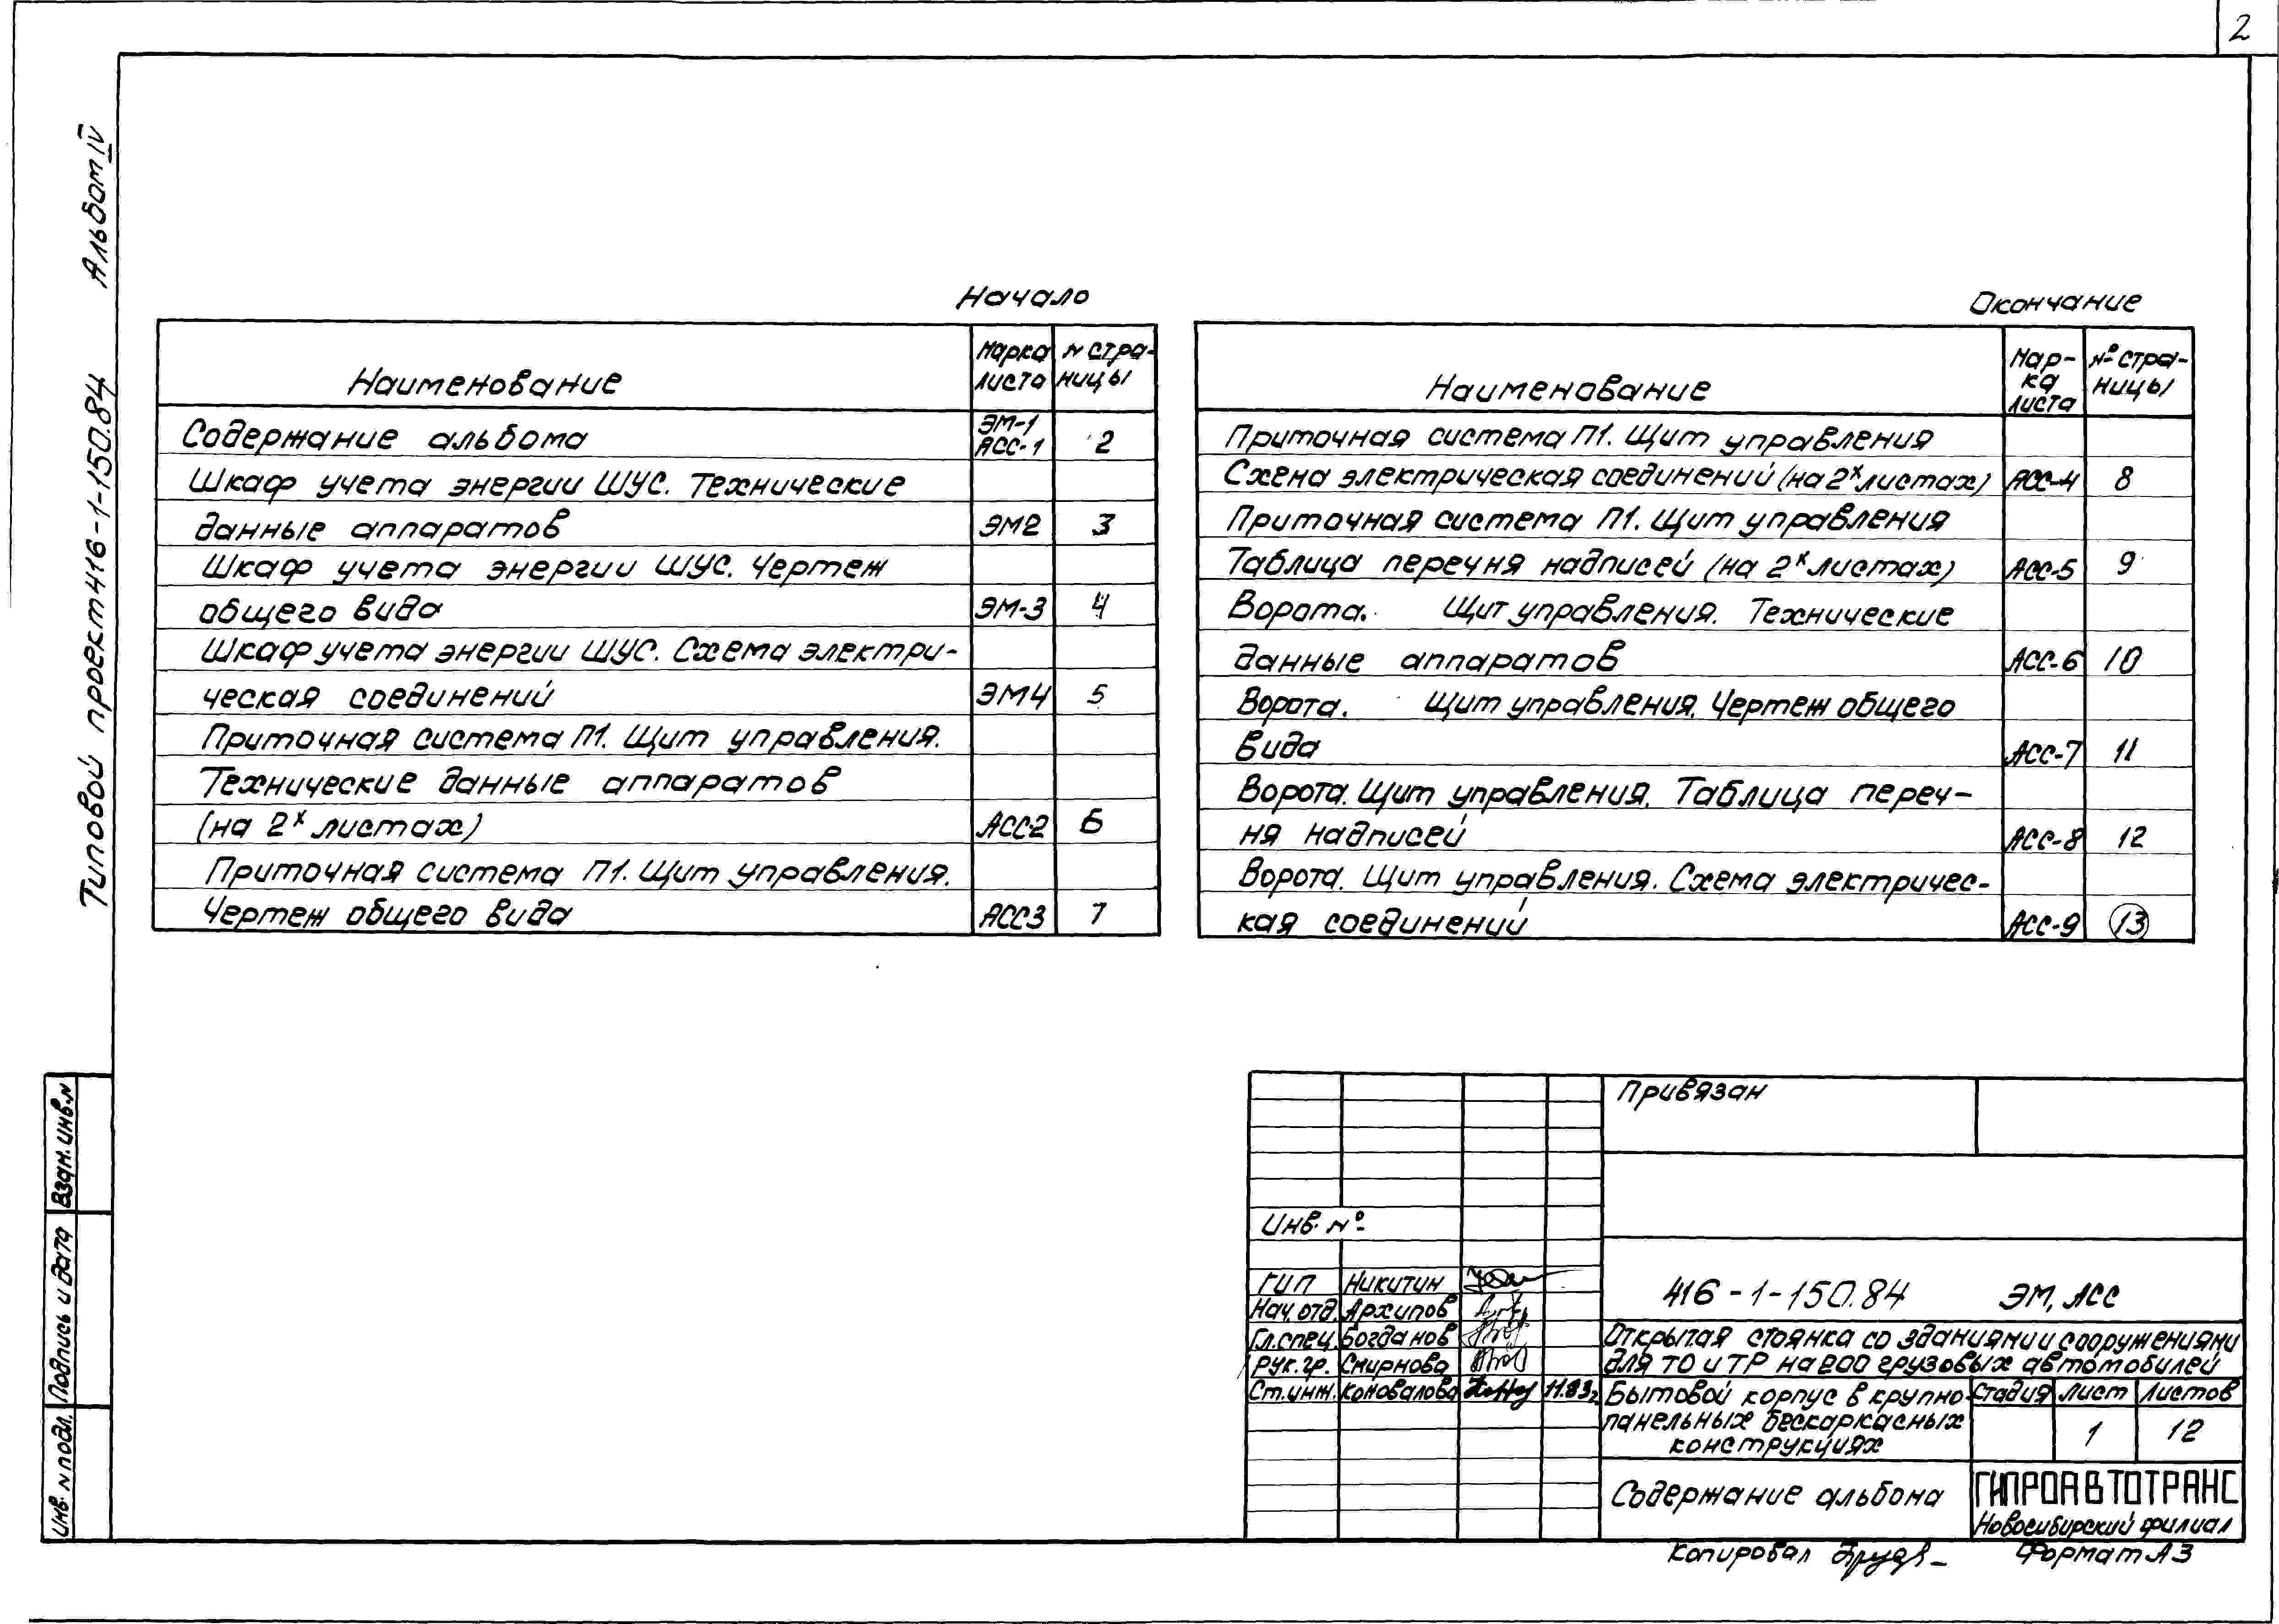 2
Типовой проект 416-1-150.84 Альбом IV
Начало
Наименование
Марка листа
N стра-ницы
Содержание альбома ЭМ-1 АСС-1 2
Шкаф учета энергии ШУС. Технические
данные аппаратов ЭМ2 3
Шкаф учета энергии ШУС. Чертеж
общего вида ЭМ-3 4
Шкаф учета энергии ШУС. Схема электри-
ческая соединений ЭМ4 5
Приточная система П1. Щит управления.
Технические данные аппаратов
(на 2х листах) АСС2 6
Приточная система П1. Щит управления.
Чертеж общего вида АСС3 7
Окончание
Наименование
Мар-ка листа
№ стра-ницы
Приточная система П1. Щит управления
Схема электрическая соединений (на 2х листах) АСС-4 8
Приточная система П1. Щит управления
Таблица перечня надписей (на 2х листах) АСС-5 9
Ворота. Щит управления. Технические
данные аппаратов АСС-6 10
Ворота. Щит управления. Чертеж общего
вида АСС-7 11
Ворота. Щит управления. Таблица переч-
ня надписей АСС-8 12
Ворота. Щит управления. Схема электричес-
кая соединений АСС-9 13
Взам. инв. N
Подпись и дата
Инв. N подл.
Привязан
Инв. №
ГИП Никитин
Нач. отд. Архипов
Гл. спец. Богданов
Рук. гр. Смирнова
Ст. инж. Коновалова 11.83г.
416-1-150.84 ЭМ, АСС
Открытая стоянка со зданиями и сооружениями
для ТО и ТР на 200 грузовых автомобилей
Бытовой корпус в крупно-
панельных бескаркасных
конструкциях
Стадия Лист Листов
1 12
Содержание альбома
ГИПРОАВТОТРАНС
Новосибирский филиал
Копировал
Формат А3